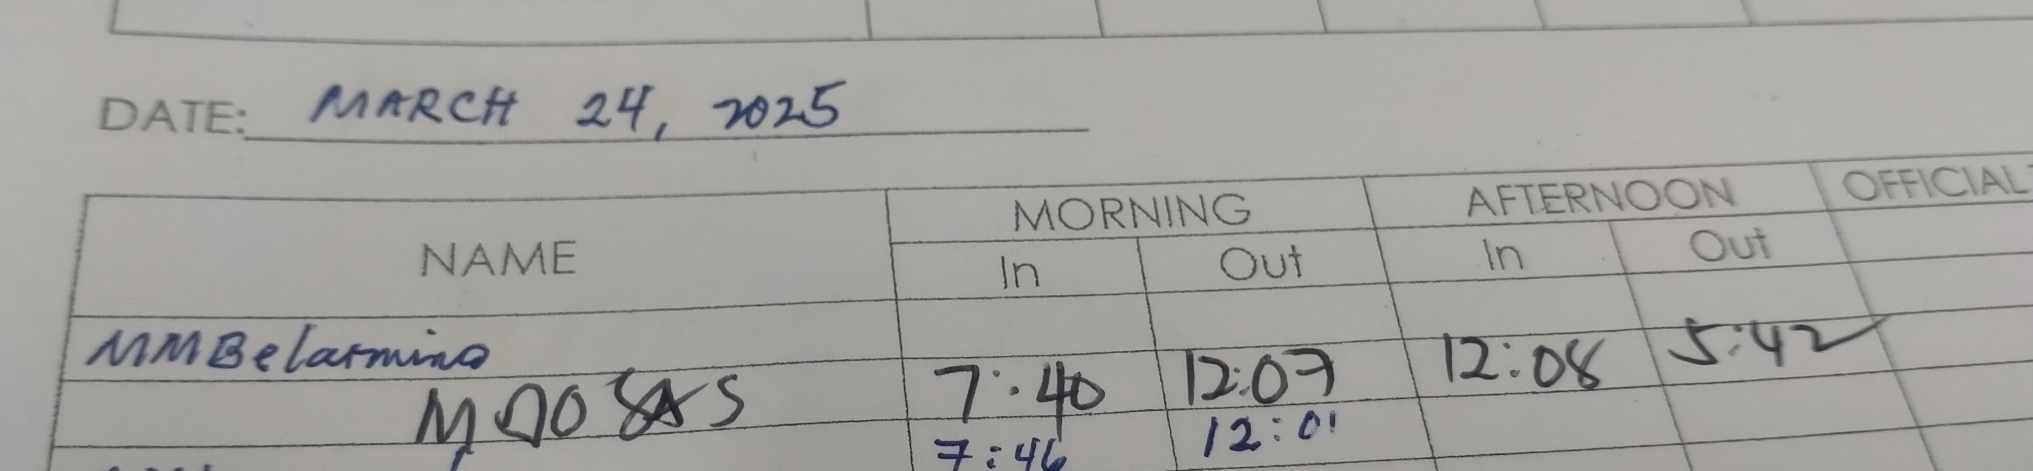 DATE: MARCH 24, 2025
NAME MORNING AFTERNOON OFFICIAL
In Out In Out
MMBelarmino
7:40 12:07 12:08 5:42
7:46 12:01